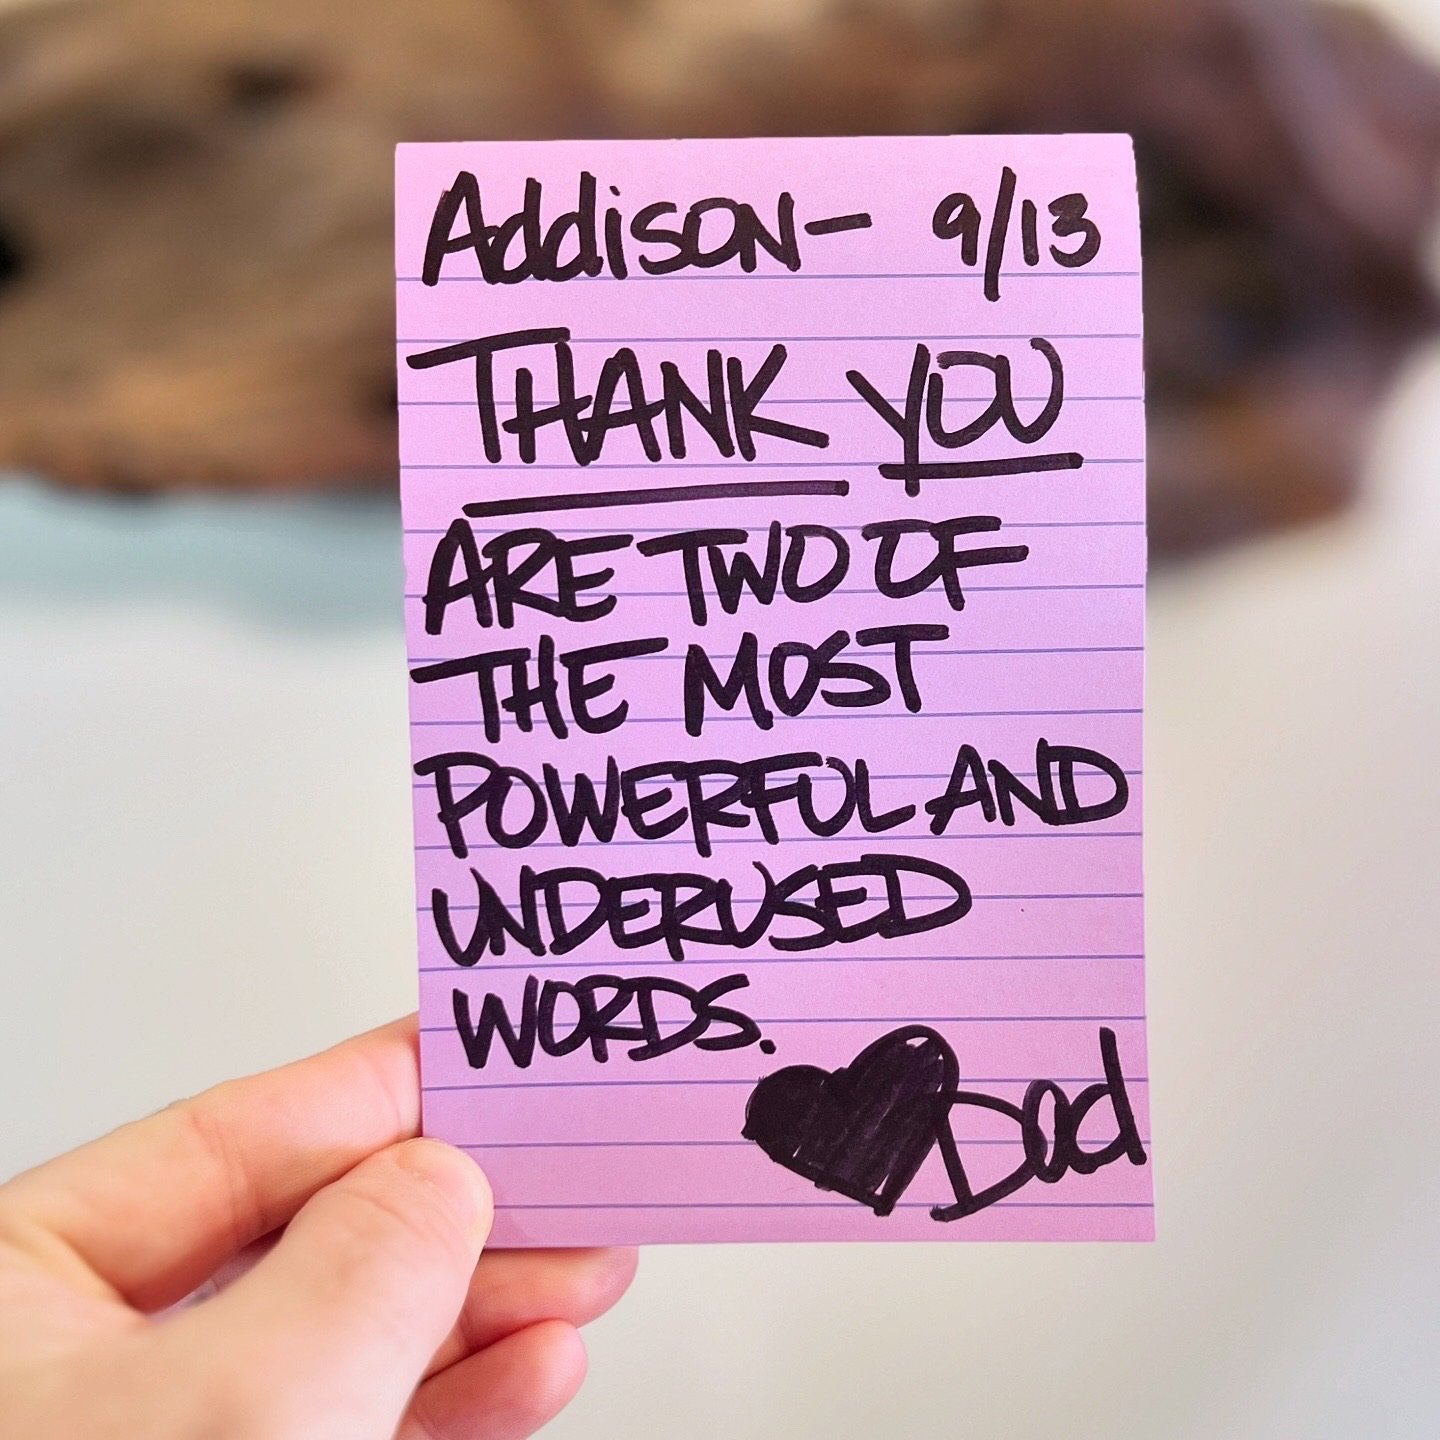 Addison- 9/13
THANK YOU
ARE TWO OF
THE MOST
POWERFUL AND
UNDERUSED
WORDS.
Dad